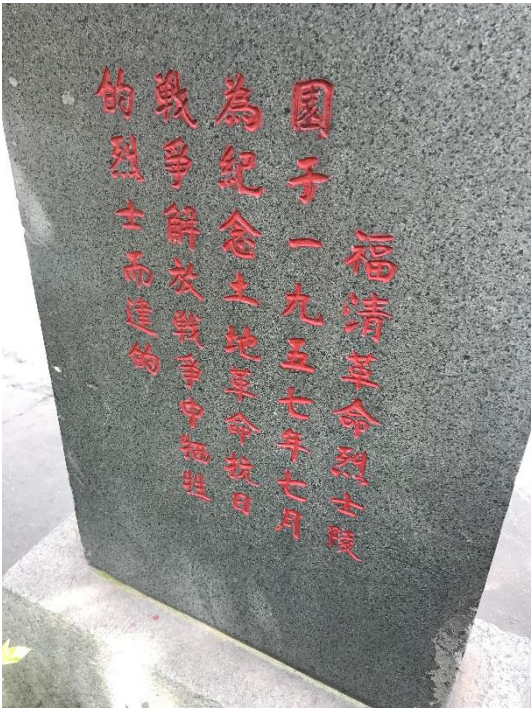 福清革命烈士陵
園于一九五七年七月
為紀念土地革命抗日
戰爭解放戰爭中牺牲
的烈士而建的